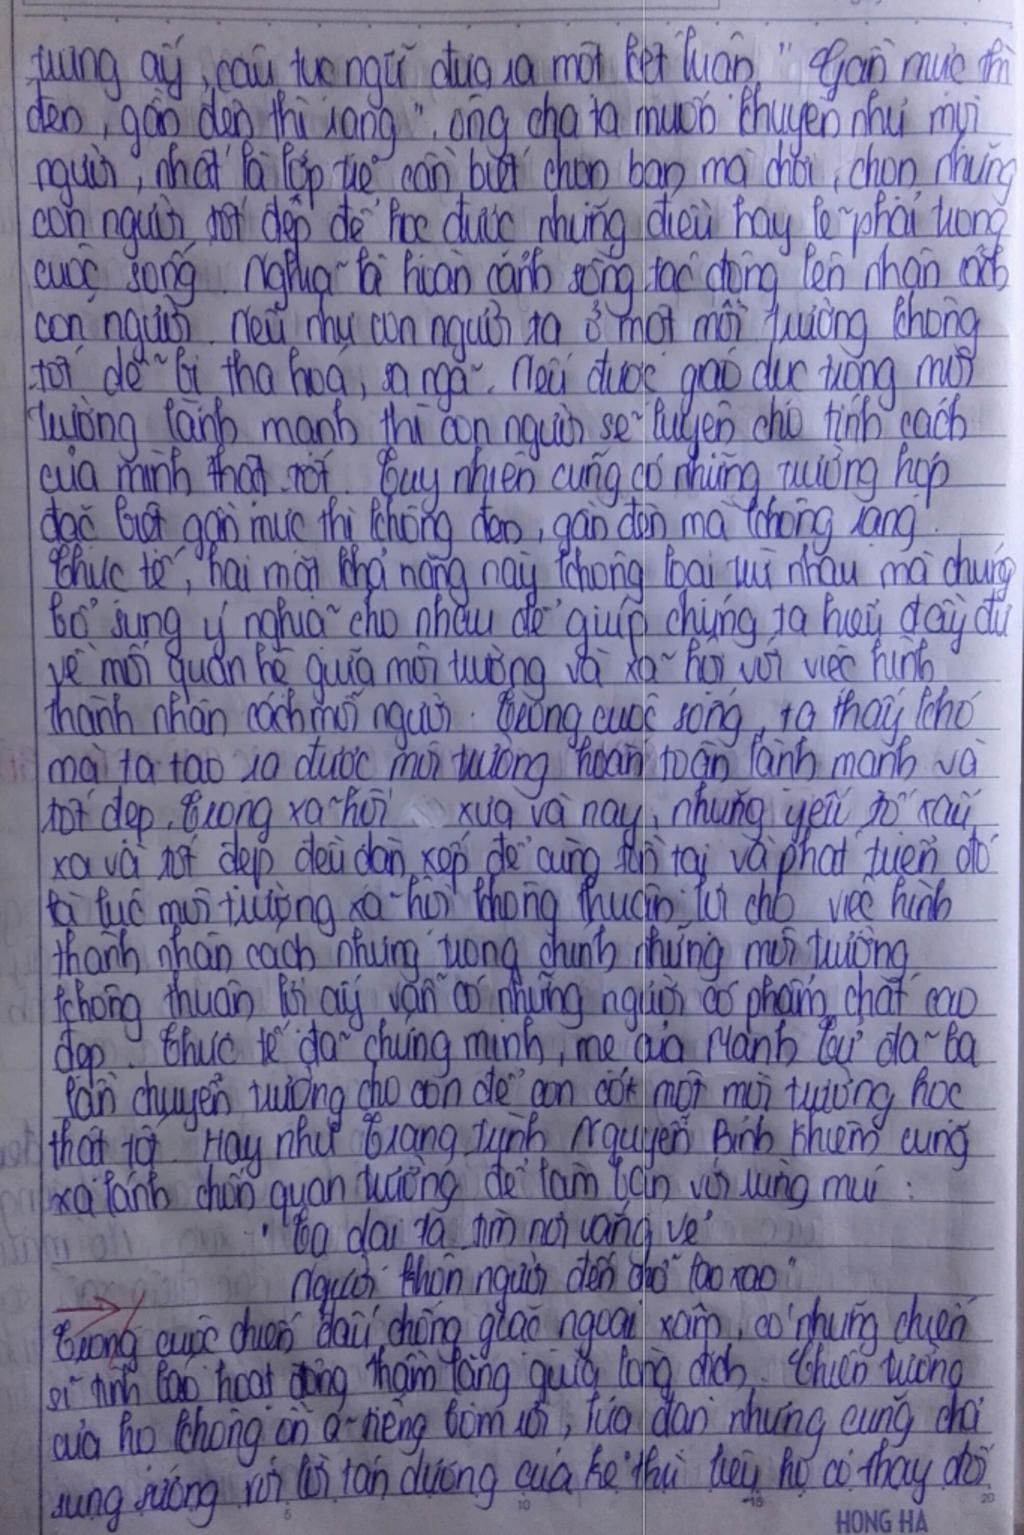 trưng ấy, câu tục ngữ đưa ra một kết luận " Gần mực thì
đen, gần đèn thì sáng", ông cha ta muốn khuyên nhủ mọi
người, nhất là lớp trẻ cần biết chọn bạn mà chơi, chọn những
con người tốt đẹp để học được những điều hay lẽ phải trong
cuộc sống. Nghĩa là hoàn cảnh sống tác động lên nhân cách
con người. Nếu như con người ta ở một môi trường không
tốt dễ bị tha hoá, sa ngã. Nếu được giáo dục trong môi
trường lành mạnh thì con người sẽ luyện cho tính cách
của mình thật tốt. Tuy nhiên cũng có những trường hợp
đặc biệt gần mực thì không đen, gần đèn mà không sáng.
Thực tế, hai mặt khả năng này không loại trừ nhau mà chúng
bổ sung ý nghĩa cho nhau để giúp chúng ta hiểu đầy đủ
về mối quan hệ giữa môi trường và xã hội với việc hình
thành nhân cách mỗi người. Trong cuộc sống, ta thấy khó
mà ta tạo ra được môi trường hoàn toàn lành mạnh và
tốt đẹp. Trong xã hội xưa và nay, những yếu tố xấu
xa và tốt đẹp đều đan xen để cùng tồn tại và phát triển đó
là lúc môi trường xã hội không thuận lợi cho việc hình
thành nhân cách nhưng trong chính những môi trường
không thuận lợi ấy vẫn có những người có phẩm chất cao
đẹp. Thực tế đã chứng minh, mẹ của Mạnh Tử đã ba
lần chuyển trường cho con để con có một môi trường học
thật tốt. Hay như Trạng Trình Nguyễn Bỉnh Khiêm cũng
xa lánh chốn quan trường để làm bạn với rừng núi:
"Ta dại ta tìm nơi vắng vẻ
Người khôn người đến chỗ lao xao"
Trong cuộc chiến đấu chống giặc ngoại xâm, có những chiến
sĩ tình báo hoạt động thầm lặng giữa lòng địch. Chiến trường
của họ không ồn ã tiếng bom rơi, lửa đạn nhưng cũng chả
sung sướng với lời tán dương của kẻ thù liệu họ có thay đổi
HONG HA